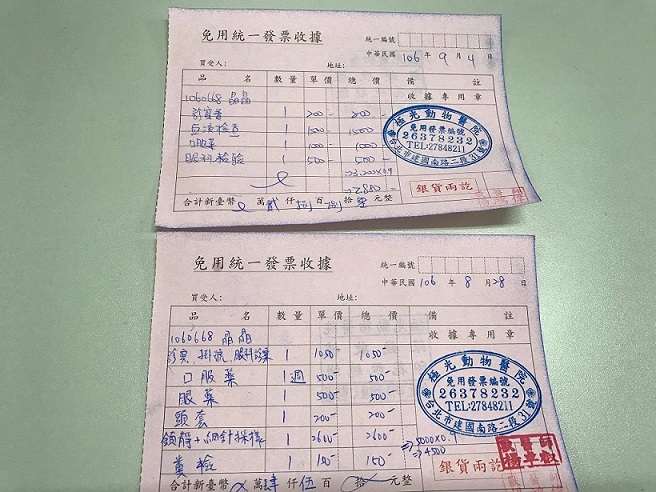 免用統一發票收據
統一編號
中華民國 106 年 9 月 4 日
買受人: 地址:
品 名 數量 單價 總價 備 註
1060668 晶晶 收據專用章
診察費 1 200- 200-
1 1500 1500
口服藥 1
眼科檢驗 1 500- 500-
→2880-
極光動物醫院
免用發票編號
26378232
TEL:27848211
台北市建國南路二段31號
銀貨兩訖
合計新臺幣 萬 貳 仟 捌 百 捌 拾 元整
免用統一發票收據
統一編號
中華民國 106 年 8 月 28 日
買受人: 地址:
品 名 數量 單價 總價 備 註
1060668 晶晶 收據專用章
診察、掛號、眼科診察 1 1050- 1050-
口服藥 1週 500- 500-
眼藥 1 500- 500-
頭套 1 200- 200-
鎮靜+細針採樣 1 2600- 2600-
糞檢 1 150- 150-
⇒5000×0.9
⇒4500
極光動物醫院
免用發票編號
26378232
TEL:27848211
台北市建國南路二段31號
獸醫師
銀貨兩訖
合計新臺幣 萬 肆 仟 伍 百 拾 元整